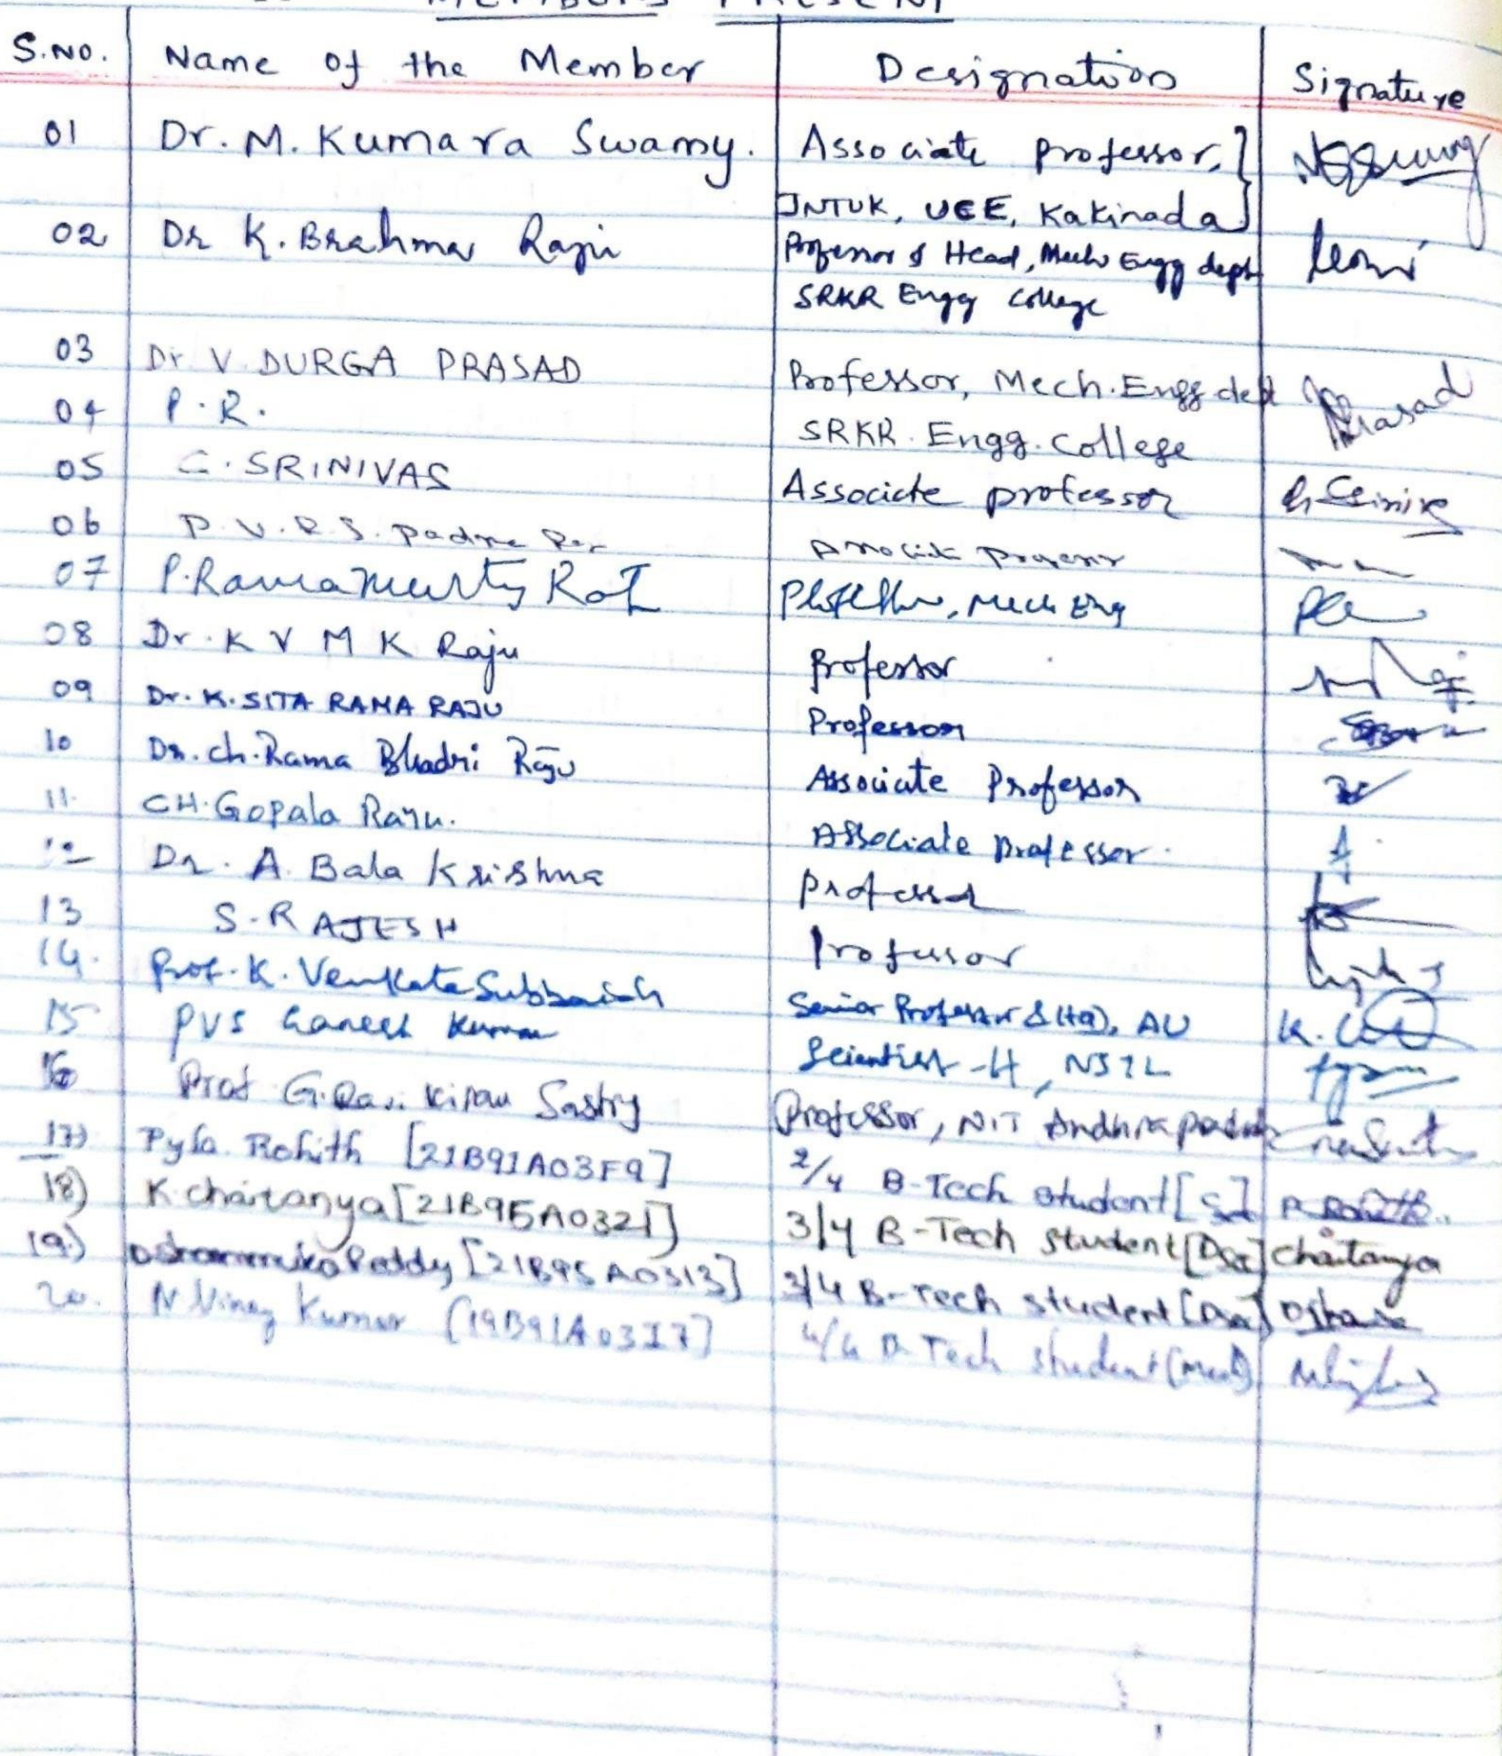 MEMBERS PRESENT
S.NO. Name of the Member Designation Signature
01 Dr. M. Kumara Swamy. Associate professor,
JNTUK, UCE, Kakinada
02 Dr K. Brahma Raju Professor & Head, Mech Engg dept
SRKR Engg College
03 Dr V. DURGA PRASAD Professor, Mech. Engg dept Prasad
04 P. R. SRKR. Engg. College
05 C. SRINIVAS Associate professor
06 P. V. R. S. Padma Associate Professor
07 P. Ramamurty Professor, Mech Eng
08 Dr. K V M K Raju Professor
09 Dr. K. SITA RAMA RAJU Professor
10 Dr. ch. Rama Bhadri Raju Associate Professor
11. CH. Gopala Raju. Associate Professor.
12 Dr. A. Bala Krishna Professor
13 S. RAJESH Professor
14. Prof. K. Venkata Subbaiah Senior Professor & AU
15 PVS Ganesh Kumar Scientist-H, NSTL
16 Prof G. Ravi Kiran Sastry Professor, NIT Andhra
17) Pyla. Rohith [21B91A03F9] 2/4 B-Tech student
18) K chaitanya [21B95A0321] 3/4 B-Tech student chaitanya
19.) Reddy [21B95A0313] 3/4 B-Tech student
20. N Vinay Kumar [19B91A03I7] 4/4 B-Tech student